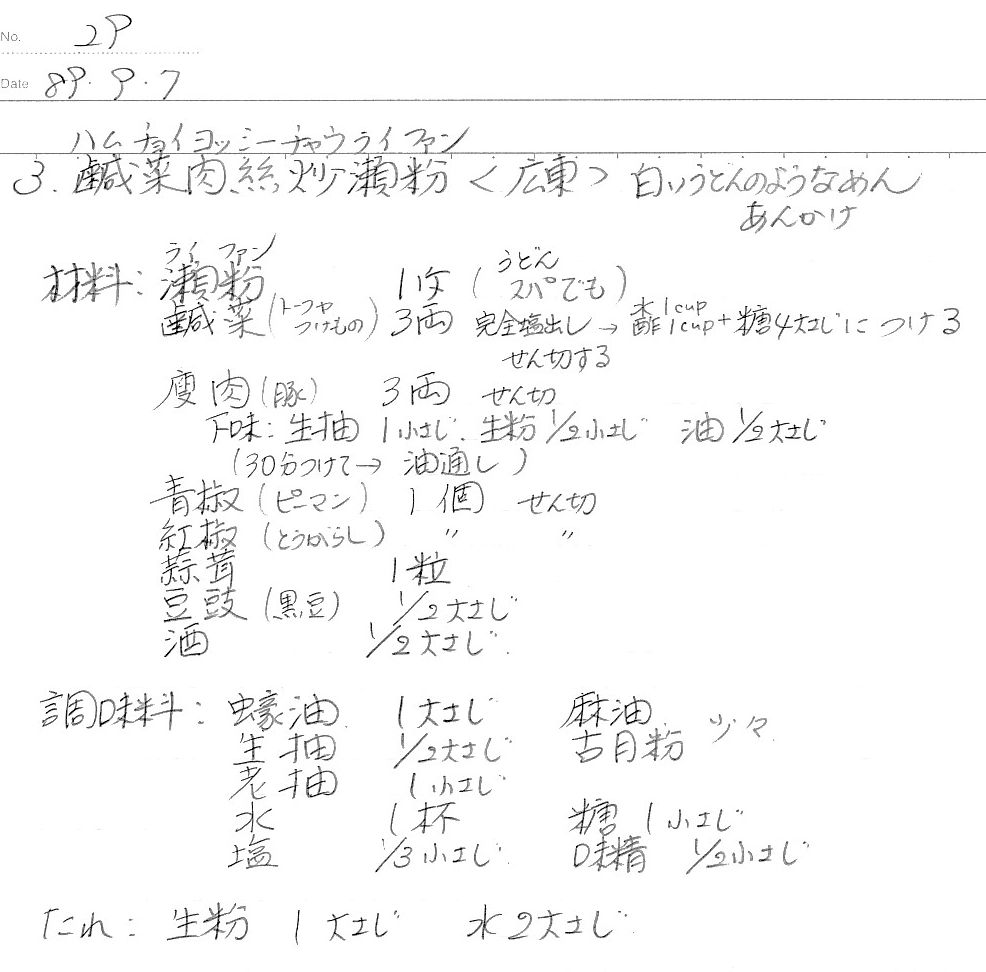 No. 29
Date 89・9・7
ハムチョイヨッシーチャウライファン
3. 鹹菜肉絲炒瀬粉<広東> 白いうどんのようなめん
あんかけ
ライファン
材料: 瀬粉 1 (うどん スパでも)
鹹菜(トーフヤ つけもの) 3両 完全塩出し→水1cup 酢1cup+糖4大さじにつける
せん切する
瘦肉(豚) 3両 せん切
下味: 生抽 1小さじ. 生粉 1/2小さじ 油 1/2大さじ
(30分つけて→ 油通し)
青椒(ピーマン) 1個 せん切
紅椒(とうがらし) 〃 〃
蒜茸 1粒
豆豉(黒豆) 1/2大さじ
酒 1/2大さじ.
調味料: 蠔油 1大さじ 麻油
生抽 1/2大さじ 古月粉 少々
老抽 1小さじ
水 1杯 糖 1小さじ
塩 1/3小さじ 味精 1/2小さじ
たれ: 生粉 1大さじ 水2大さじ